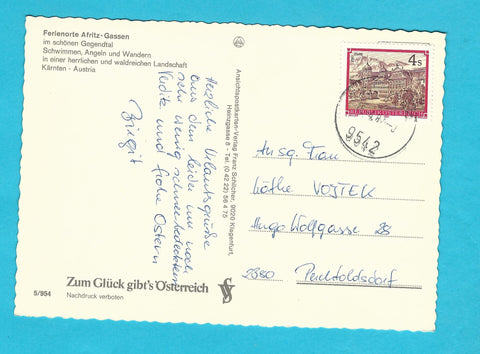 Ferienorte Afritz-Gassen
im schönen Gegendtal
Schwimmen, Angeln und Wandern
in einer herrlichen und waldreichen Landschaft
Kärnten - Austria
Herzliche Urlaubsgrüße
aus dem leider nur noch
sehr wenig schneebedeckten
und frohe Ostern
Birgit
Zum Glück gibt's Österreich
5/954
Nachdruck verboten
Ansichtspostkarten-Verlag Franz Schilcher, 9020 Klagenfurt,
Tel. (0 42 22) 56 4 75
4 S
REPUBLIK ÖSTERREICH
9542
An sg. Frau
Käthe VOJTEK
Hugo Wolfgasse 28
2380 Perchtoldsdorf